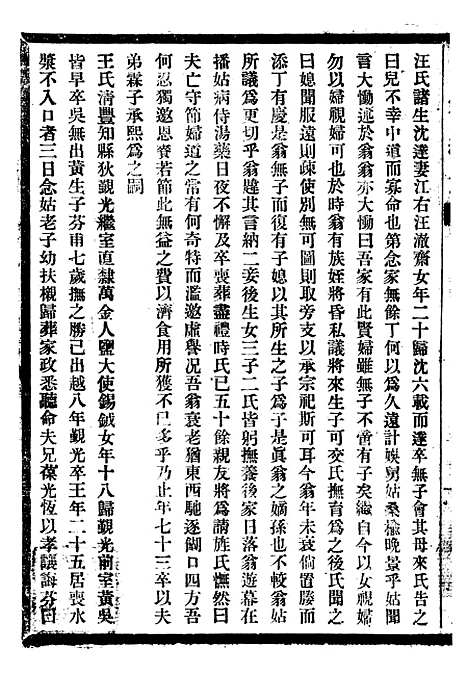 汪氏諸生沈達妻江右汪澈齋女年二十歸沈六載而達卒無子會其母來氏告之
曰兒不幸中道而寡命也第念家無餘丁何以為久遠計娛舅姑桑榆晚景乎姑聞
言大慟述於翁翁亦大慟曰吾家有此賢婦雖無子不啻有子矣繼自今以女視婦
勿以婦視婦可也於時翁有族姪將昏私議將來生子可交氏撫育為之後氏聞之
曰媳聞服遠則疎使別無可圖則取旁支以承宗祀斯可耳今翁年未衰倘置媵而
添丁有慶是翁無子而復有子媳以其所生之子為子是眞翁之嫡孫也不較翁姑
所議為更切乎翁韙其言納二妾後生女三子二氏皆躬撫養後家日落翁遊幕在
播姑病侍湯藥日夜不懈及卒喪葬盡禮時氏已五十餘親友將為請旌氏憮然曰
夫亡守節婦道之常有何奇特而濫邀虛譽況吾翁衰老猶東西馳逐餬口四方吾
何忍獨邀恩賚若節此無益之費以濟食用所獲不已多乎乃止年七十三卒以夫
弟霖子承熙為之嗣
王氏淸豐知縣狄觀光繼室直隸萬金人鹽大使錫鉞女年十八歸觀光前室黃吳
皆早卒吳無出黃生子芬甫七歲撫之勝己出越八年觀光卒王年二十五居喪水
漿不入口者三日念姑老子幼扶櫬歸葬家政悉聽命夫兄葆光恆以孝讓誨芬曰